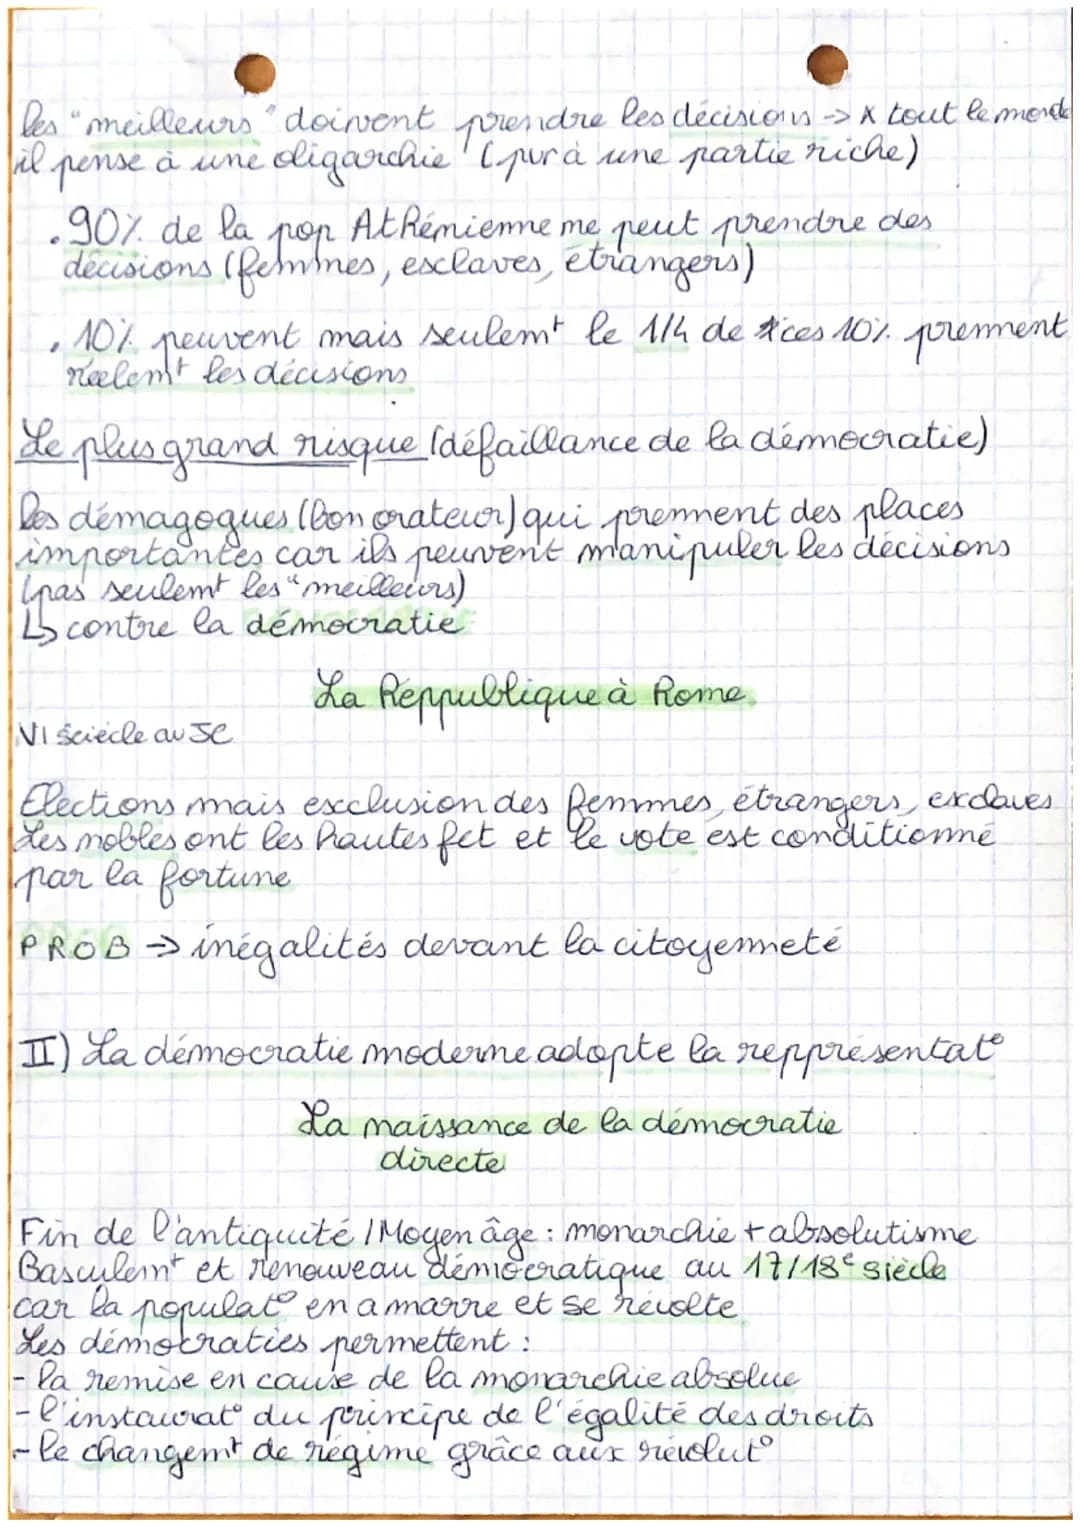 les "meilleurs" doivent prendre les décisions -> x tout le monde
il pense à une oligarchie (pvr à une partie riche)
.90% de la pop Athénienne ne peut prendre des
décisions (femmes, esclaves, étrangers)
. 10% peuvent mais seulemt le 1/4 de ces 10% prennent
réelemt les décisions
Le plus grand risque (défaillance de la démocratie)
les démagogues (bon orateur) qui prennent des places
importantes car ils peuvent manipuler les décisions
(pas seulemt les "meilleurs)
↳ contre la démocratie
La Reppublique à Rome
VI sciècle av JC
Elections mais exclusion des femmes, étrangers, esclaves
Les nobles ont les hautes fct et le vote est conditionné
par la fortune
PROB -> inégalités devant la citoyenneté
II) La démocratie moderne adopte la repprésentat°
La naissance de la démocratie
directe
Fin de l'antiquité / Moyen âge : monarchie + absolutisme
Basculemt et renouveau démocratique au 17/18e siècle
car la populat° en a marre et se révolte
Les démocraties permettent :
- la remise en cause de la monarchie absolue
- l'instaurat° du principe de l'égalité des droits
- le changemt de régime grâce aux révolut°